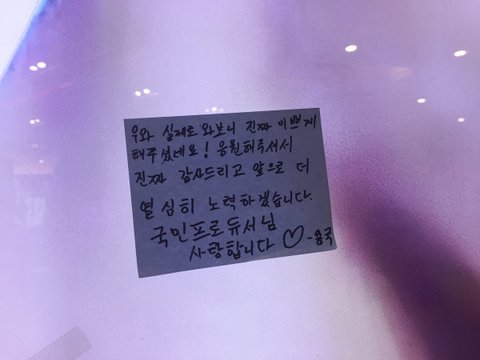 우와 실제로 와보니 진짜 이쁘게
해주셨네요! 응원해주셔서
진짜 감사드리고 앞으로 더
열심히 노력하겠습니다.
국민프로듀서님
사랑합니다 ♡-용국